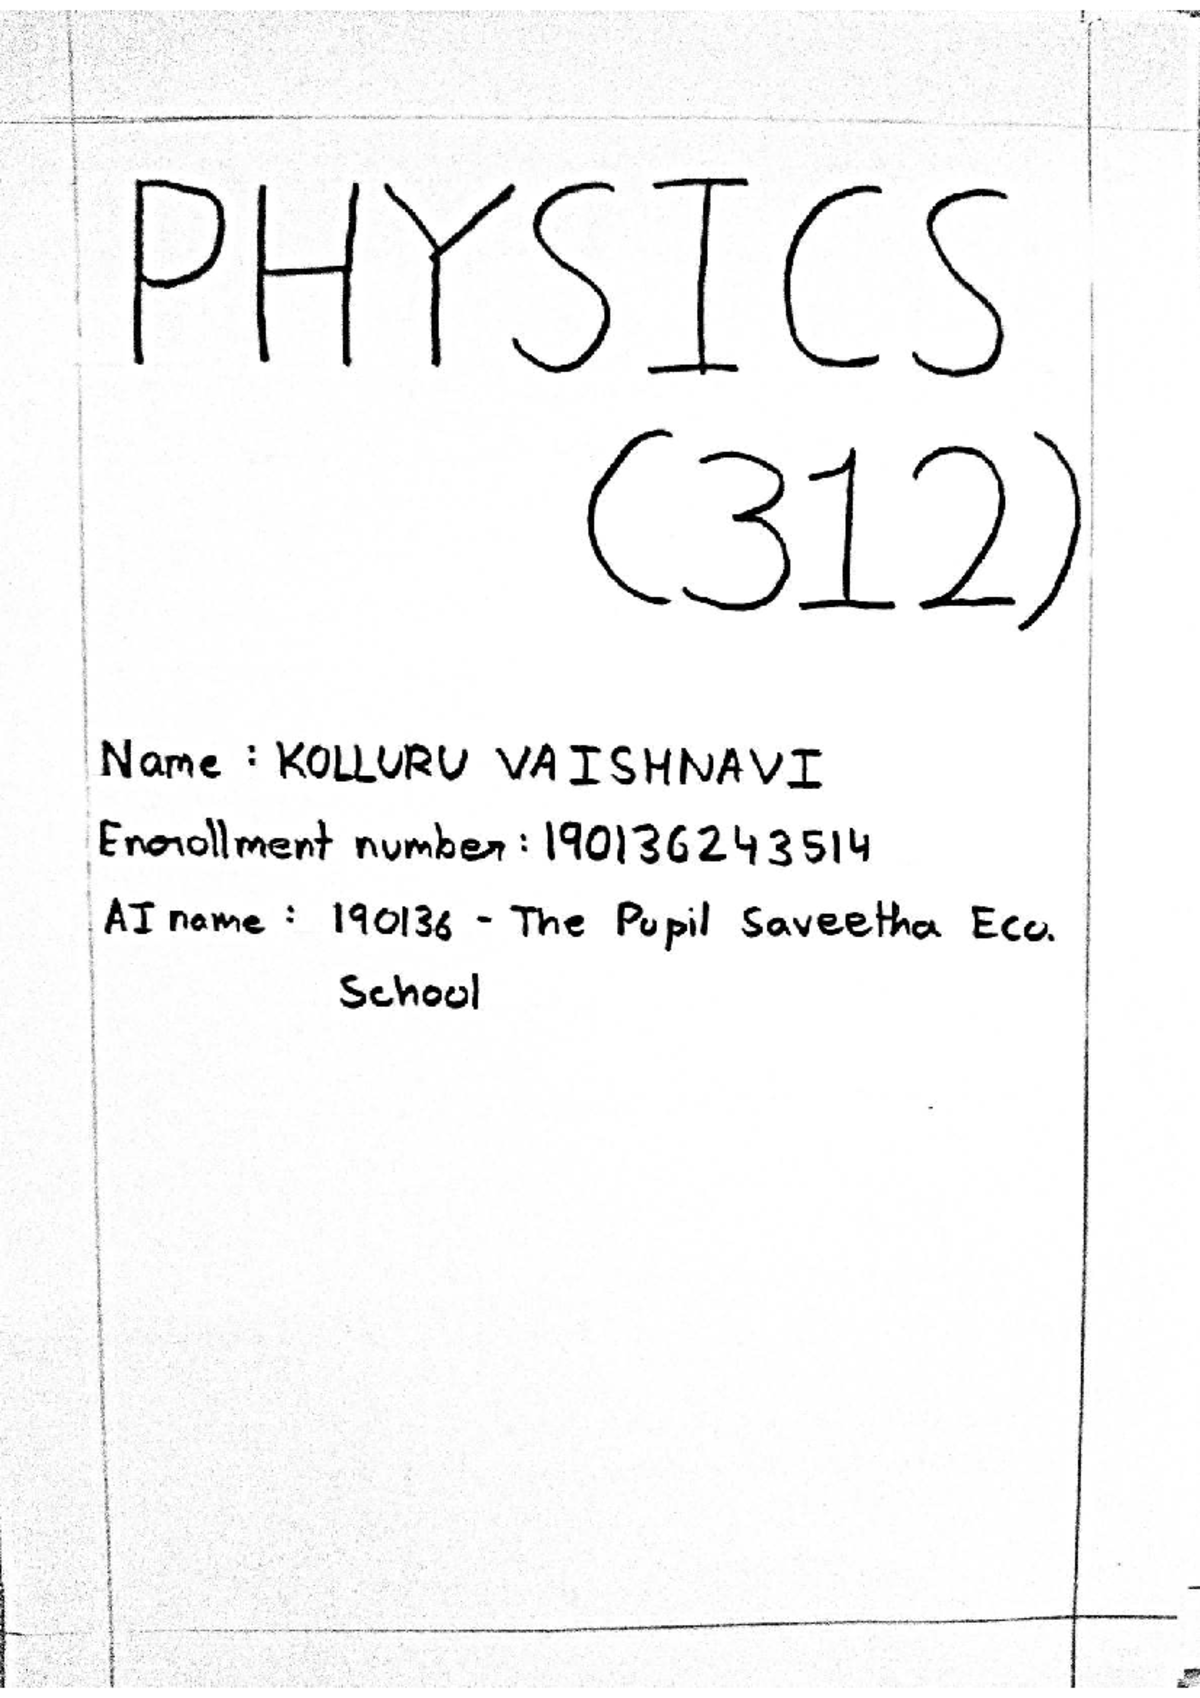 PHYSICS
(312)
Name : KOLLURU VAISHNAVI
Enrollment number : 190136243514
AI name : 190136 - The Pupil Saveetha Eco.
School